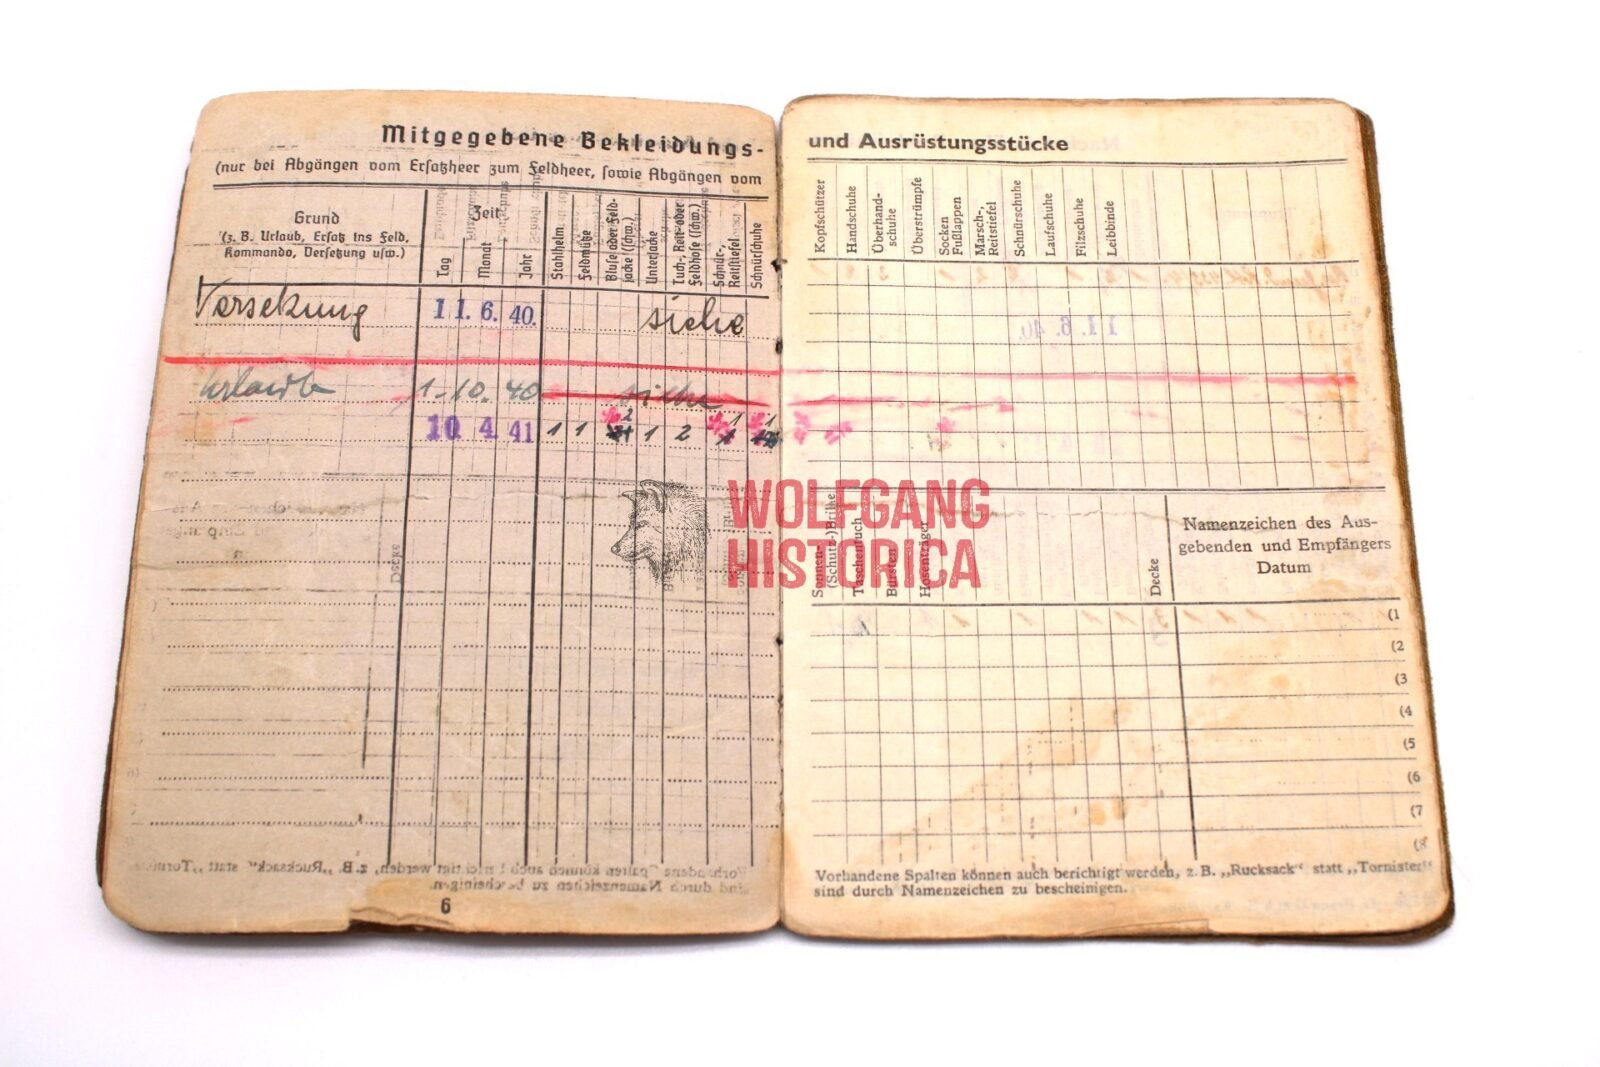 Mitgegebene Bekleidungs-
(nur bei Abgängen vom Ersatzheer zum Feldheer, sowie Abgängen vom
Grund
(z. B. Urlaub, Ersatz ins Feld,
Kommando, Versetzung usw.)
Zeit
Tag
Monat
Jahr
Stahlhelm
Feldmütze
Bluse oder Feld-
jacke (schw.)
Unterjacke
Tuch-, Reit- oder
Feldhose (schw.)
Schnür-,
Reitstiefel
Schnürschuhe
Versetzung 11. 6. 40. siehe
Urlaub 1. 10. 40 siehe
10. 4. 41 1 1 2 1 2 1 1
6
und Ausrüstungsstücke
Kopfschützer
Handschuhe
Überhand-
schuhe
Überstrümpfe
Socken
Fußlappen
Marsch-,
Reitstiefel
Schnürschuhe
Laufschuhe
Filzschuhe
Leibbinde
WOLFGANG
HISTORICA
Sonnen-
(Schutz-)Brille
Taschentuch
Bürsten
Hosenträger
Decke
Namenzeichen des Aus-
gebenden und Empfängers
Datum
(1
(2
(3
(4
(5
(6
(7
(8
Vorhandene Spalten können auch berichtigt werden, z. B. „Rucksack“ statt „Tornister“
sind durch Namenzeichen zu bescheinigen.